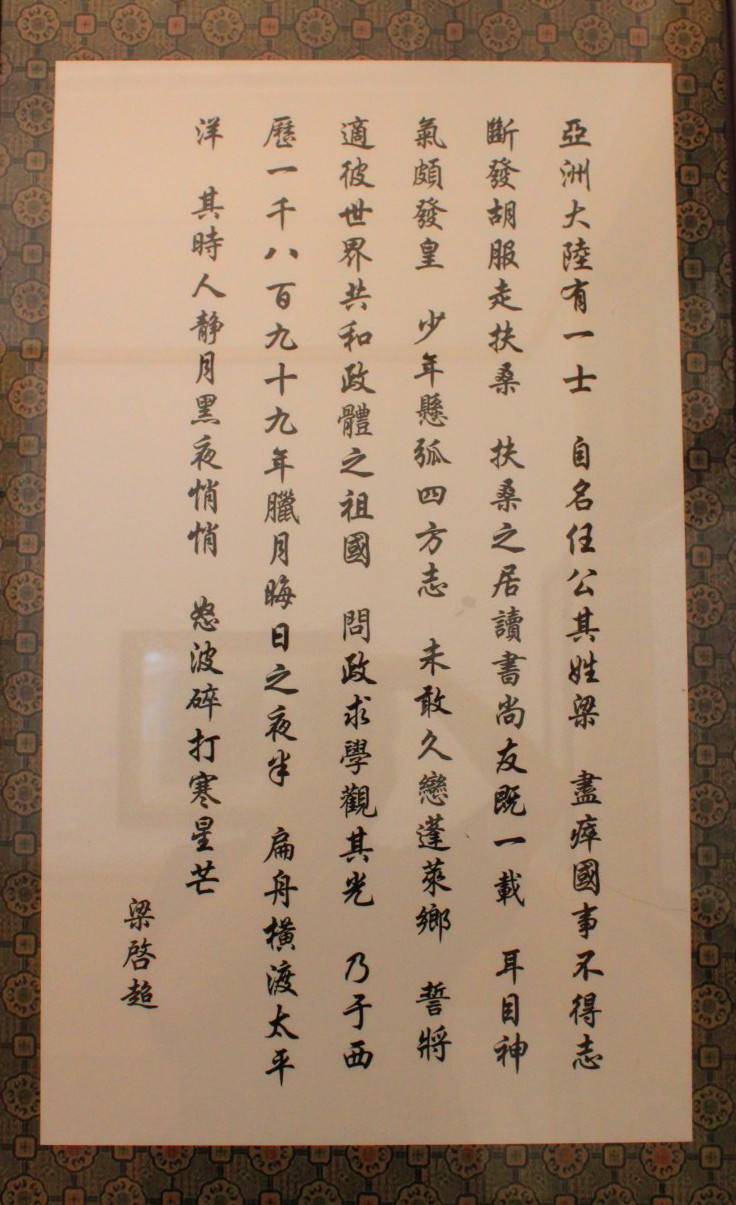 亞洲大陸有一士　自名任公其姓梁　盡瘁國事不得志
斷發胡服走扶桑　扶桑之居讀書尚友既一載　耳目神
氣頗發皇　少年懸弧四方志　未敢久戀蓬萊鄉　誓將
適彼世界共和政體之祖國　問政求學觀其光　乃于西
曆一千八百九十九年臘月晦日之夜半　扁舟橫渡太平
洋　其時人靜月黑夜悄悄　怒波碎打寒星芒
梁啓超